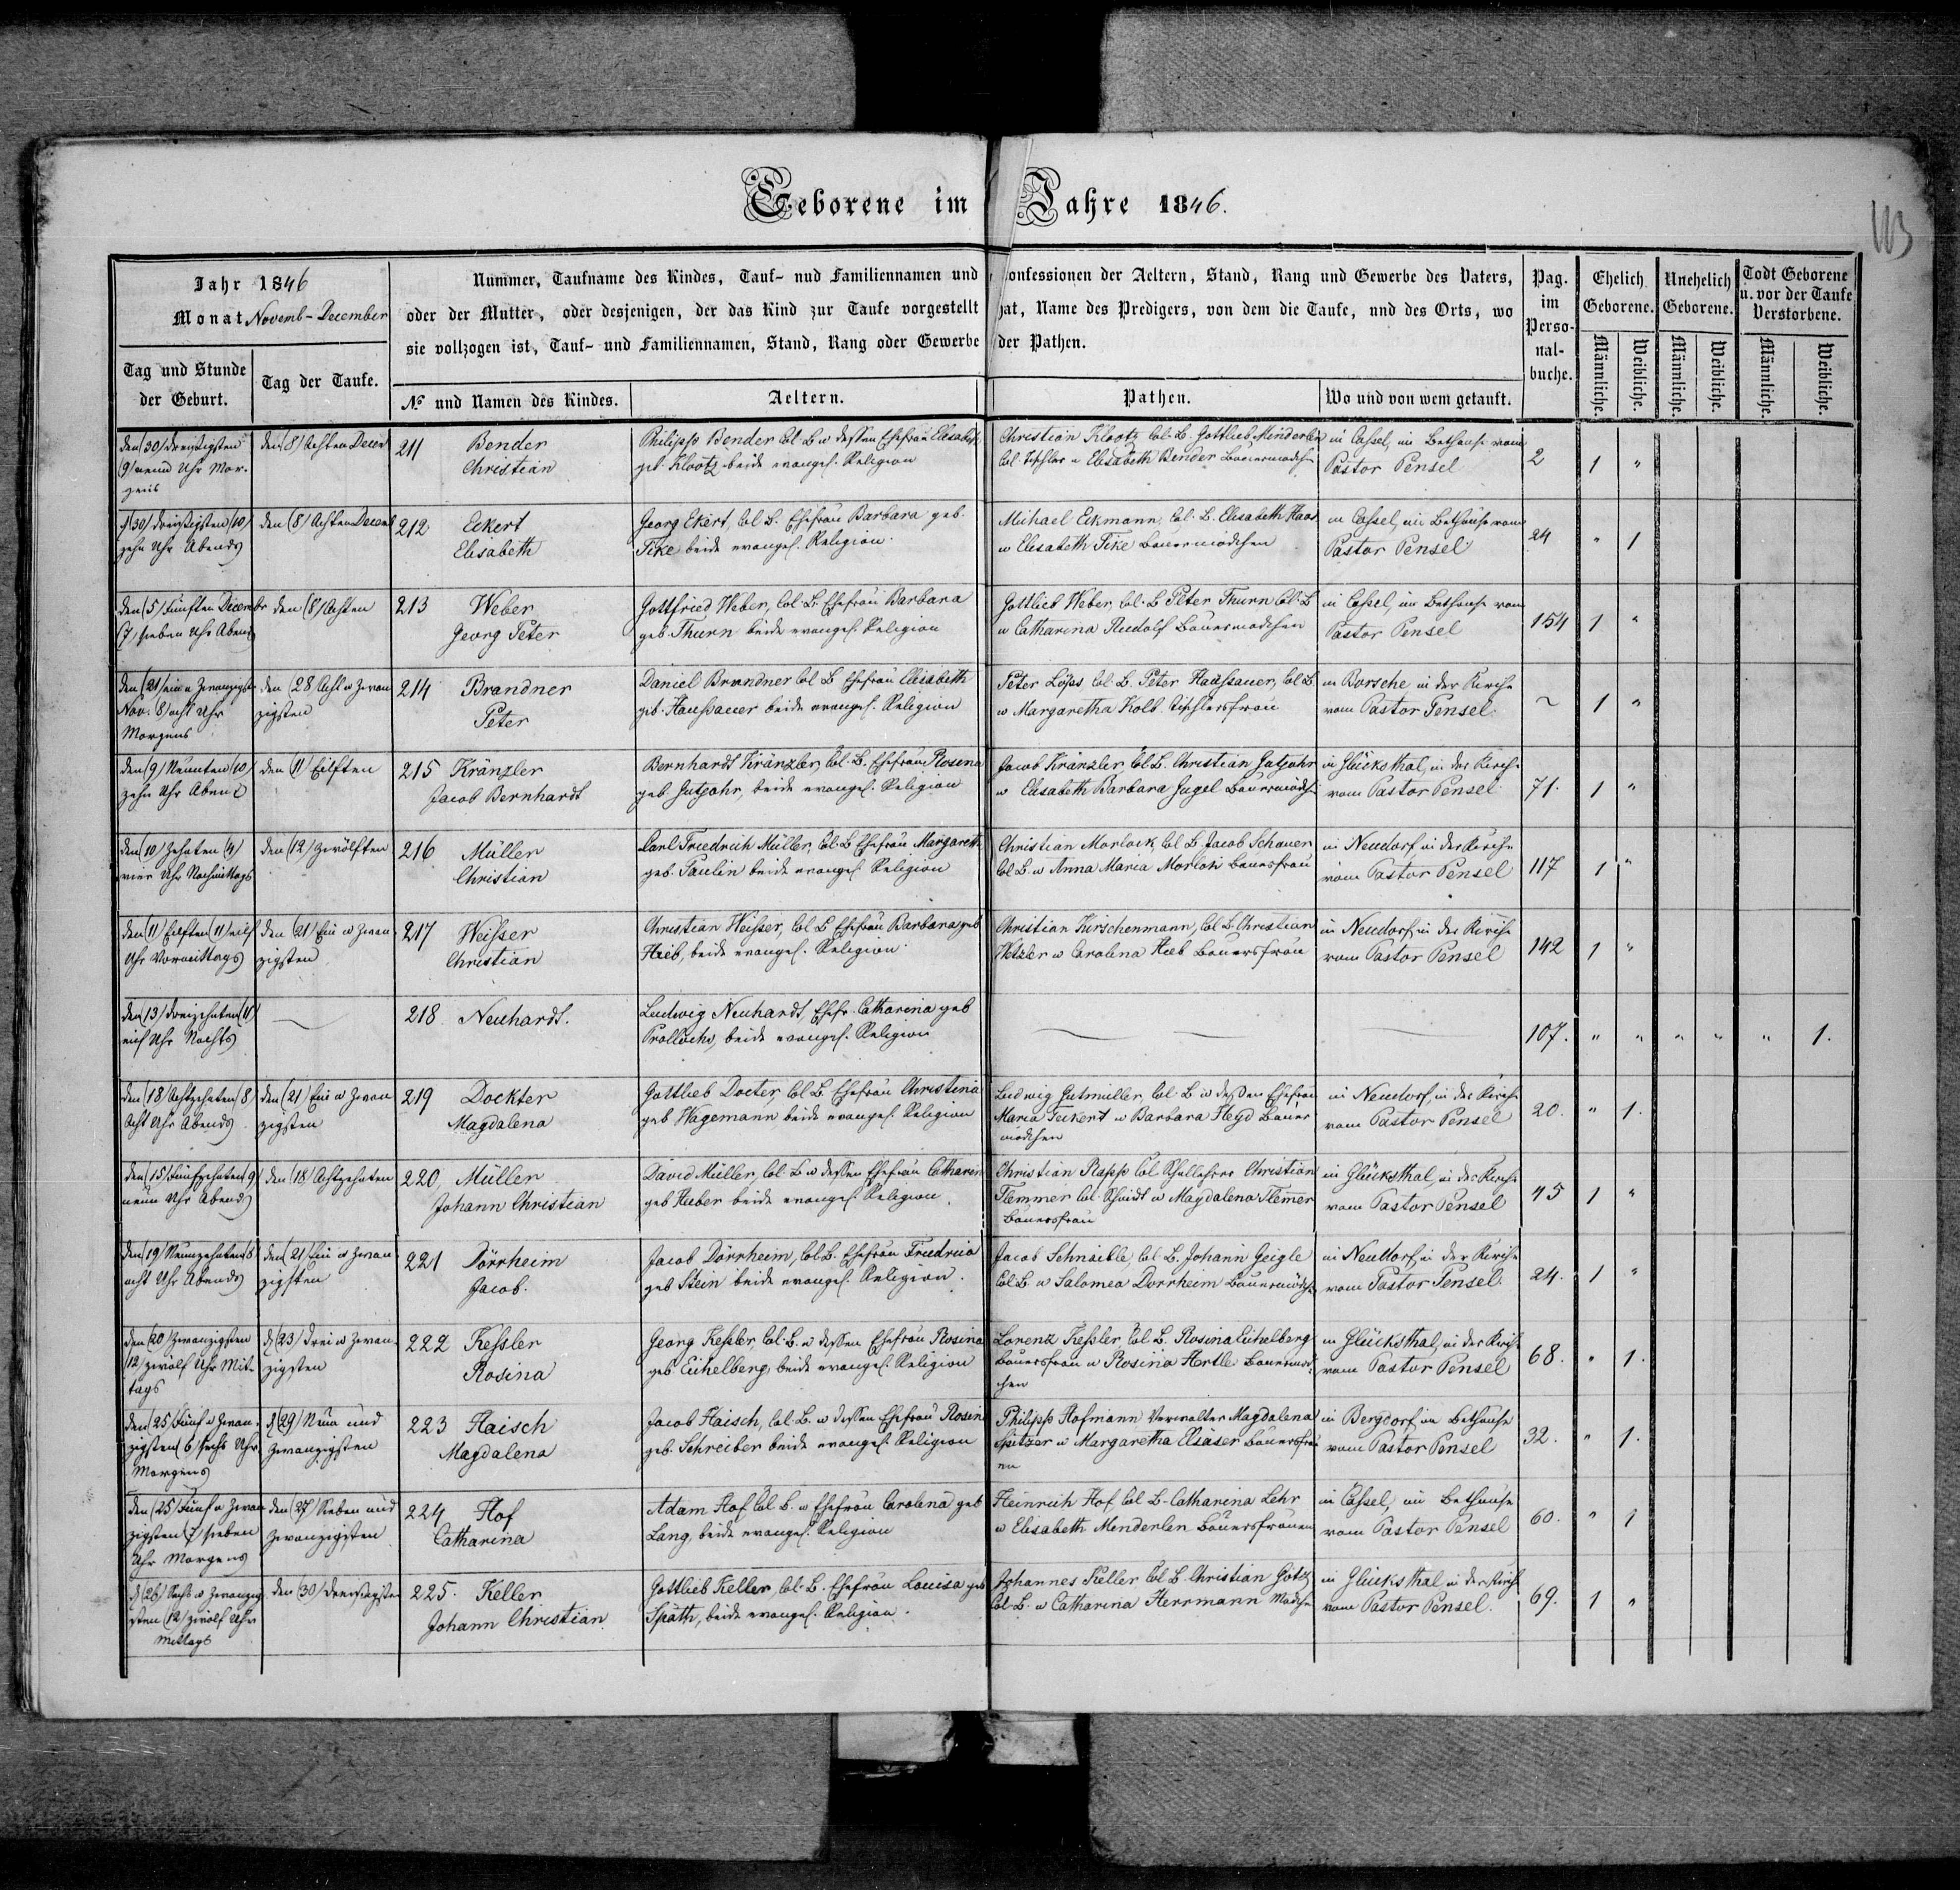 Geborene im Jahre 1846.
113
Jahr 1846
Monat Novemb-December
Nummer, Taufname des Kindes, Tauf- nud Familiennamen und Confessionen der Aeltern, Stand, Rang und Gewerbe des Vaters,
oder der Mutter, oder desjenigen, der das Kind zur Taufe vorgestellt hat, Name des Predigers, von dem die Taufe, und des Orts, wo
sie vollzogen ist, Tauf- und Familiennamen, Stand, Rang oder Gewerbe der Pathen.
Pag. im Perso- nal- buche.
Ehelich Geborene.
Unehelich Geborene.
Todt Geborene u. vor der Taufe Verstorbene.
Tag und Stunde der Geburt.
Tag der Taufe.
No und Namen des Kindes.
Aeltern.
Pathen.
Wo und von wem getauft.
Männliche. Weibliche. Männliche. Weibliche. Männliche. Weibliche.
den (30) dreißigsten
(9) neun Uhr Mor-
gens
den (8) Achten Decem
211 Bender
Christian
Philipp Bender Col. B u dessen Ehefrau Elisabeth
geb. Klootz beide evangel. Religion
Christian Klootz Col. B. Gottlieb Menderlen
Col. Tischler u Elisabeth Bender Bauermädchen
in Cassel, im Bethause vom
Pastor Pensel
2 1 "
d (30) dreißigsten (10)
zehn Uhr Abends
den (8) Achten Decemb
212 Eckert
Elisabeth
Georg Ekert, Col. B. Ehefrau Barbara geb.
Fike beide evangel. Religion.
Michael Eckmann, Col. B. Elisabeth Haas
u Elisabeth Fike Bauermädchen
in Cassel, im Bethause vom
Pastor Pensel
24 " 1
den (5) Fünften Decembr
(7) sieben Uhr Abends
den (8) Achten
213 Weber
Georg Peter
Gottfried Weber, Col. B. Ehefrau Barbara
geb. Thurn beide evangel. Religion
Gottlieb Weber, Col. B Peter Thurn Col. B
u Catharina Rudolf Bauermädchen
in Cassel, im Bethause vom
Pastor Pensel
154 1 "
den (21) ein u Zwanzigst
Nov. (8) acht Uhr
Morgens
den (28 Acht u Zwan
zigsten
214 Brandner
Peter
Daniel Brandner Col. B Ehefrau Elisabeth
geb. Haußauer beide evangel. Religion
Peter Löps Col. B. Peter Haaßauer, Col. B
u Margaretha Kolb Tischlersfrau
in Borsche in der Kirche
vom Pastor Pensel.
~ 1 "
den (9) Neunten (10)
zehn Uhr Abend
den (11) Eilften
215 Kränzler
Jacob Bernhardt
Bernhardt Kränzler, Col. B. Ehefrau Rosina
geb. Gutjahr, beide evangel. Religion
Jacob Kränzler, Col. B. Christian Gutjahr
u Elisabeth Barbara Gugel Bauermädch
in Glücksthal, in der Kirche
vom Pastor Pensel
71. 1 "
den (10) Zehnten (4)
vier Uhr Nachmittags
den (12) Zwölften
216 Müller
Christian
Carl Friedrich Müller, Col. B Ehefrau Margareth
geb. Paulin beide evangel. Religion
Christian Morlock, Col. B. Jacob Schauer
Col. B. u Anna Maria Morlok Bauersfrau
in Neudorf in der Kirche
vom Pastor Pensel
117 1 "
den (11) Eilften (11) eilf
Uhr Vormittags
den (21) Ein u Zwan
zigsten
217 Weisser
Christian
Christian Weisser, Col. B Ehefrau Barbara geb
Hieb, beide evangel. Religion.
Christian Kirschenmann, Col. B. Christian
Wetzler u Carolina Hieb Bauersfrau
in Neudorf in der Kirche
vom Pastor Pensel
142 1 "
den (13) dreizehnten (11)
eilf Uhr Nachts
218 Neuhardt.
Ludwig Neuhardt, Ehefr. Catharina geb
Prollochs, beide evangel. Religion
107. " " " " " 1.
den (18) Achtzehnten (8
Acht Uhr Abends
den (21) Ein u Zwan
zigsten
219 Dockter
Magdalena
Gottlieb Docter, Col. B Ehefrau Christina
geb Wagemann beide evangel. Religion
Ludwig Gutmiller, Col. B u dessen Ehefrau
Maria Feikert u Barbara Heyd Bauer
mädchen
in Neudorf, in der Kirche
vom Pastor Pensel
20. " 1.
den (15) Fünfzehnten (9
neun Uhr Abends
den (18) Achtzehnten
220, Müller
Johann Christian
David Müller, Col. B u dessen Ehefrau Catharin
geb Huber beide evangel. Religion.
Christian Rapp Col. Schullehrer Christian
Flemmer Col. Schmidt u Magdalena Flemer
Bauersfrau
in Glücksthal, in der Kirche
vom Pastor Pensel
45 1 "
den (19) Neunzehnten (8
acht Uhr Abends
den (21) Ein u Zwan
zigsten
221 Dörrheim
Jacob.
Jacob Dörrheim, Col. B. Ehefrau Friedricia
geb Stein beide evangel. Religion.
Jacob Schnaible, Col. B, Johann Geigle
Col. B. u Salomea Dorrheim Bauermädch
in Neudorf, in der Kirche
vom Pastor Pensel.
24. 1 "
den (20) Zwanzigsten
(12) zwölf Uhr Mit-
tags
d (23) drei u Zwan-
zigsten
222 Kessler
Rosina
Georg Kessler, Col. B. u dessen Ehefrau Rosina
geb. Eichelberg, beide evangel. Religion
Lorenz Kessler, Col. B. Rosina Eichelberg
Bauersfrau u Rosina Hertle Bauermäd-
chen
in Glücksthal, in der Kirch
vom Pastor Pensel
68. " 1.
den (25) Fünf u Zwan-
zigsten (6) sechs Uhr
Morgens
d (29) Neun und
Zwanzigsten
223 Haisch
Magdalena
Jacob Haisch, Col. B. u dessen Ehefrau Rosin
geb. Schreiber beide evangel. Religion
Philipp Hofmann Verwalter Magdalena
Spitzer u Margaretha Elsäser Bauersfrau
en
in Bergdorf, im Bethause
vom Pastor Pensel
32. " 1.
den (25) Fünf u Zwan
zigsten (7) sieben
Uhr Morgens
den (27) Sieben und
Zwanzigsten
224 Hof
Catharina
Adam Hof Col. B. u Ehefrau Carolina geb
Lang, beide evangel. Religion
Heinrich Hof Col. B. Catharina Lehr
u Elisabeth Menderlen Bauersfrauen
in Cassel, im Bethause
vom Pastor Pensel
60. " 1
d (26) Sechs u Zwanzig
sten (12) zwölf Uhr
Mittags
den (30) dreißigsten
225. Keller
Johann Christian
Gottlieb Keller, Col. B. Ehefrau Louisa geb
Späth, beide evangel. Religion.
Johannes Keller Col. B. Christian Götz
Col. B. u Catharina Herrmann Mädche
in Glücksthal in der Kirch
vom Pastor Pensel.
69. 1 "